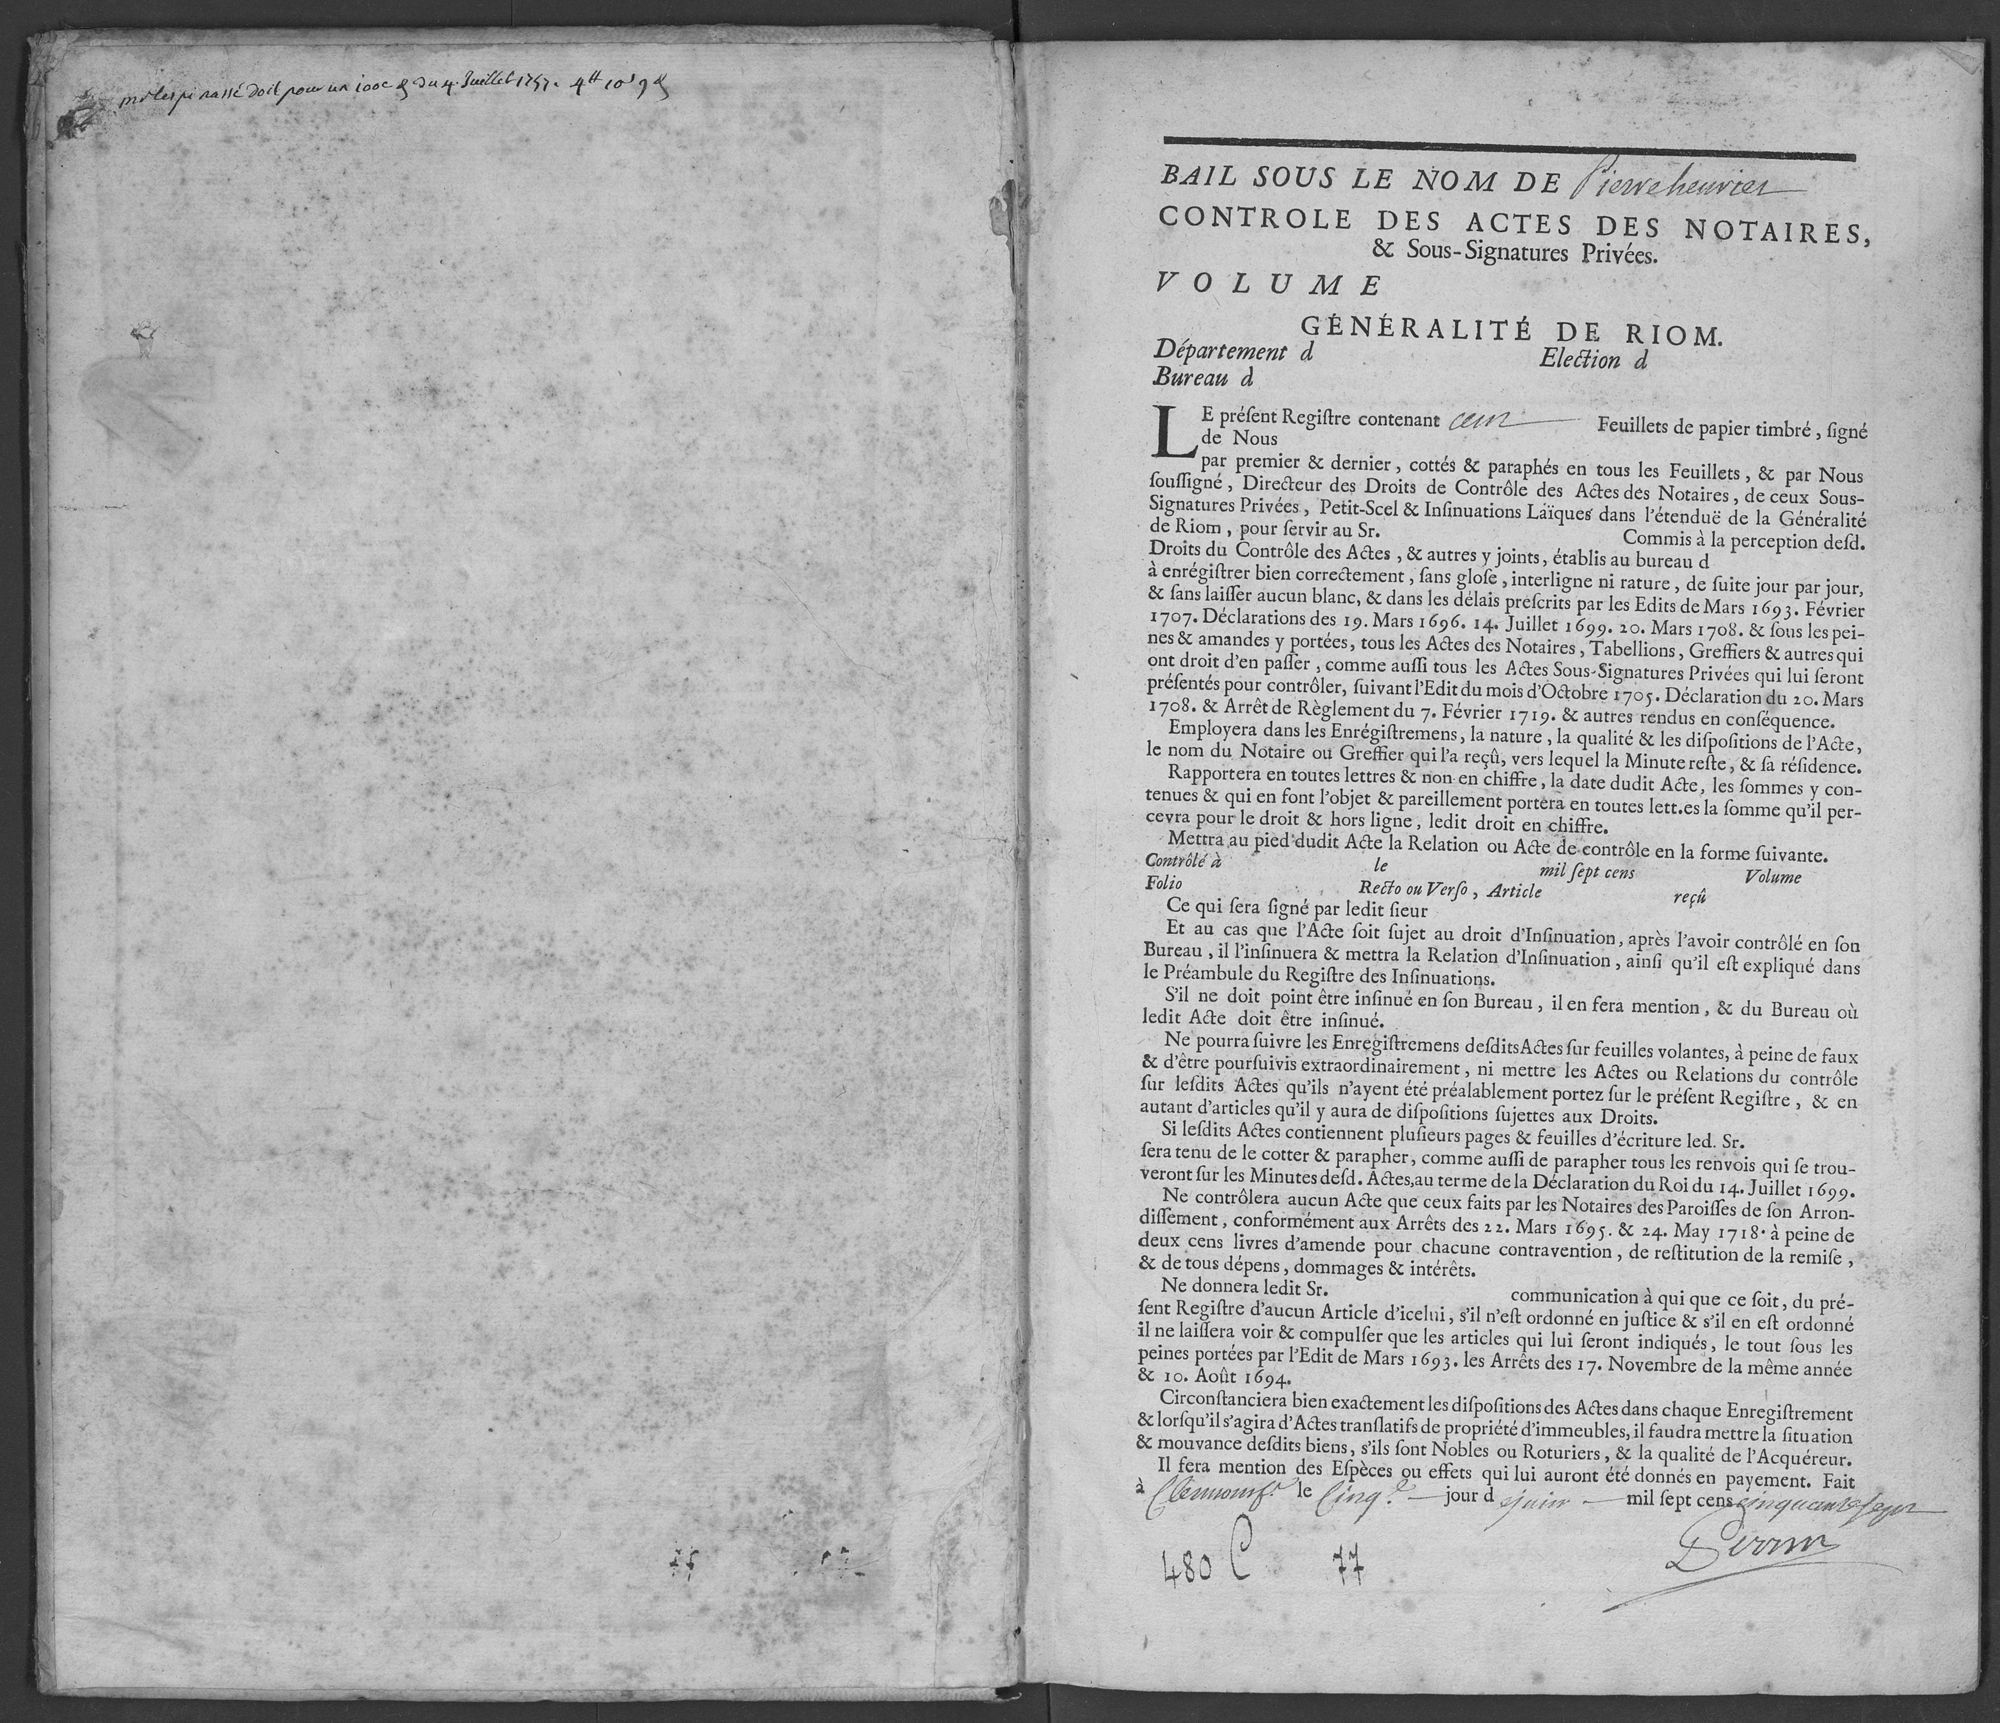 mr lespinasse doit pour un 100e d du 4. Juillet 1757. 4tt 10s 9d
BAIL SOUS LE NOM DE Pierre henriet
CONTROLE DES ACTES DES NOTAIRES,
& Sous-Signatures Privées.
VOLUME
GÉNÉRALITÉ DE RIOM.
Département d Election d
Bureau d
LE préſent Regiſtre contenant cent Feuillets de papier timbré, ſigné
de Nous
par premier & dernier, cottés & paraphés en tous les Feuillets, & par Nous
ſouſſigné, Directeur des Droits de Contrôle des Actes des Notaires, de ceux Sous-
Signatures Privées, Petit-Scel & Inſinuations Laïques dans l'étenduë de la Généralité
de Riom, pour ſervir au Sr. Commis à la perception deſd.
Droits du Contrôle des Actes, & autres y joints, établis au bureau d
à enrégiſtrer bien correctement, ſans gloſe, interligne ni rature, de ſuite jour par jour,
& ſans laiſſer aucun blanc, & dans les délais preſcrits par les Edits de Mars 1693. Février
1707. Déclarations des 19. Mars 1696. 14. Juillet 1699. 20. Mars 1708. & ſous les pei-
nes & amandes y portées, tous les Actes des Notaires, Tabellions, Greffiers & autres qui
ont droit d'en paſſer, comme auſſi tous les Actes Sous-Signatures Privées qui lui ſeront
préſentés pour contrôler, ſuivant l'Edit du mois d'Octobre 1705. Déclaration du 20. Mars
1708. & Arrêt de Règlement du 7. Février 1719. & autres rendus en conſéquence.
Employera dans les Enrégiſtremens, la nature, la qualité & les diſpoſitions de l'Acte,
le nom du Notaire ou Greffier qui l'a reçû, vers lequel la Minute reſte, & ſa réſidence.
Rapportera en toutes lettres & non en chiffre, la date dudit Acte, les ſommes y con-
tenues & qui en font l'objet & pareillement portera en toutes lett.es la ſomme qu'il per-
cevra pour le droit & hors ligne, ledit droit en chiffre.
Mettra au pied dudit Acte la Relation ou Acte de contrôle en la forme ſuivante.
Contrôlé à le mil ſept cens Volume
Folio Recto ou Verſo, Article reçû
Ce qui ſera ſigné par ledit ſieur
Et au cas que l'Acte ſoit ſujet au droit d'Inſinuation, après l'avoir contrôlé en ſon
Bureau, il l'inſinuera & mettra la Relation d'Inſinuation, ainſi qu'il eſt expliqué dans
le Préambule du Regiſtre des Inſinuations.
S'il ne doit point être inſinué en ſon Bureau, il en fera mention, & du Bureau où
ledit Acte doit être inſinué.
Ne pourra ſuivre les Enregiſtremens deſdits Actes ſur feuilles volantes, à peine de faux
& d'être pourſuivis extraordinairement, ni mettre les Actes ou Relations du contrôle
ſur leſdits Actes qu'ils n'ayent été préalablement portez ſur le préſent Regiſtre, & en
autant d'articles qu'il y aura de diſpoſitions ſujettes aux Droits.
Si leſdits Actes contiennent pluſieurs pages & feuilles d'écriture led. Sr.
ſera tenu de le cotter & parapher, comme auſſi de parapher tous les renvois qui ſe trou-
veront ſur les Minutes deſd. Actes, au terme de la Déclaration du Roi du 14. Juillet 1699.
Ne contrôlera aucun Acte que ceux faits par les Notaires des Paroiſſes de ſon Arron-
diſſement, conformément aux Arrêts des 22. Mars 1695. & 24. May 1718. à peine de
deux cens livres d'amende pour chacune contravention, de reſtitution de la remiſe,
& de tous dépens, dommages & intérêts.
Ne donnera ledit Sr. communication à qui que ce ſoit, du pré-
ſent Regiſtre d'aucun Article d'icelui, s'il n'eſt ordonné en juſtice & s'il en eſt ordonné
il ne laiſſera voir & compulſer que les articles qui lui ſeront indiqués, le tout ſous les
peines portées par l'Edit de Mars 1693. les Arrêts des 17. Novembre de la même année
& 10. Août 1694.
Circonſtanciera bien exactement les diſpoſitions des Actes dans chaque Enregiſtrement
& lorſqu'il s'agira d'Actes tranſlatifs de propriété d'immeubles, il faudra mettre la ſituation
& mouvance deſdits biens, s'ils ſont Nobles ou Roturiers, & la qualité de l'Acquéreur.
Il fera mention des Eſpèces ou effets qui lui auront été donnés en payement. Fait
à Clermont le Cinq. jour d juin mil ſept cens cinquante sept
Perrin
480 C 77